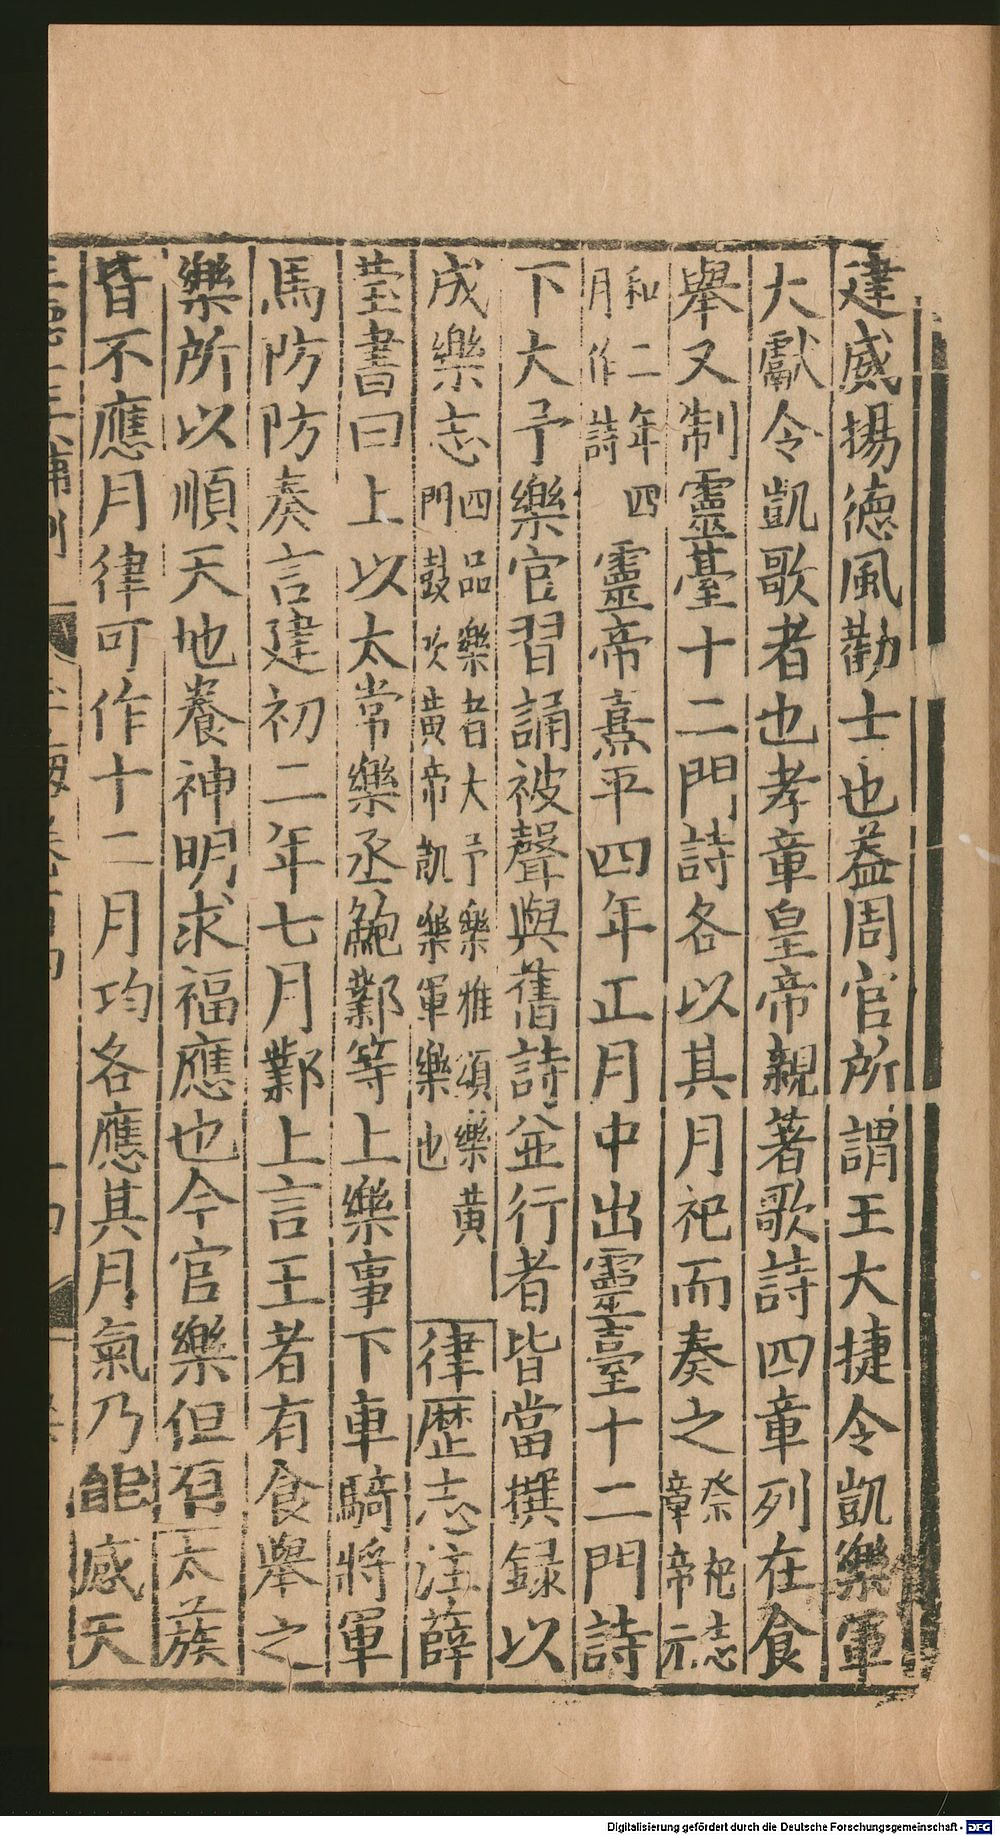 建威揚德風勸士也葢周官所謂王大捷令凱樂軍
大獻令凱歌者也孝章皇帝親著歌詩四章列在食
舉又制靈臺十二門詩各以其月祀而奏之祭祀志章帝元
和二年四月作詩靈帝熹平四年正月中出靈臺十二門詩
下大予樂官習誦被聲與舊詩並行者皆當撰録以
成樂志四品樂者大予樂雅頌樂黄門鼓吹黄帝凱樂軍樂也律歴志注薛
瑩書曰上以太常樂丞鮑鄴等上樂事下車騎將軍
馬防防奏言建初二年七月鄴上言王者有食舉之
樂所以順天地養神明求福應也今官樂但有太蔟
皆不應月律可作十二月均各應其月氣乃能感天
Digitalisierung gefördert durch die Deutsche Forschungsgemeinschaft - DFG